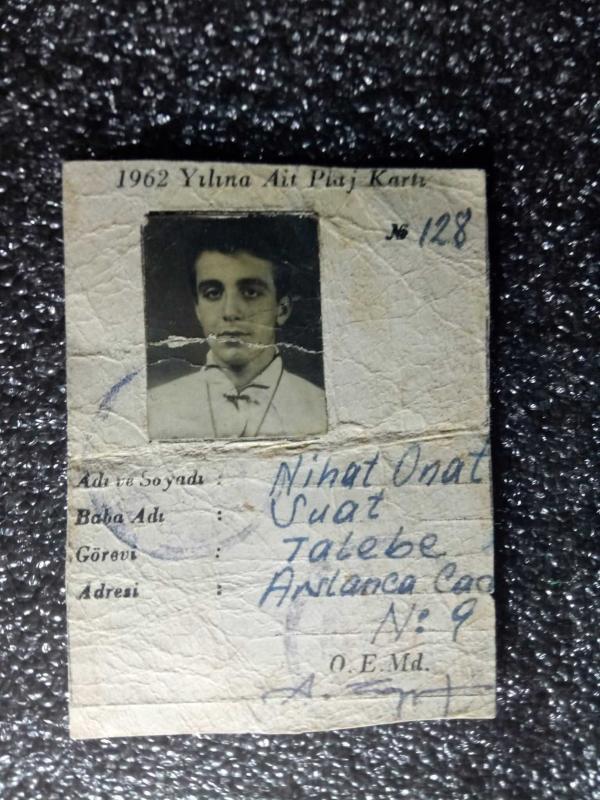 1962 Yılına Ait Plaj Kartı
№ 128
Adı ve Soyadı : Nihat Onat
Baba Adı : Suat
Görevi : Talebe
Adresi : Arslanca Cad
N: 9
O. E. Md.
A.